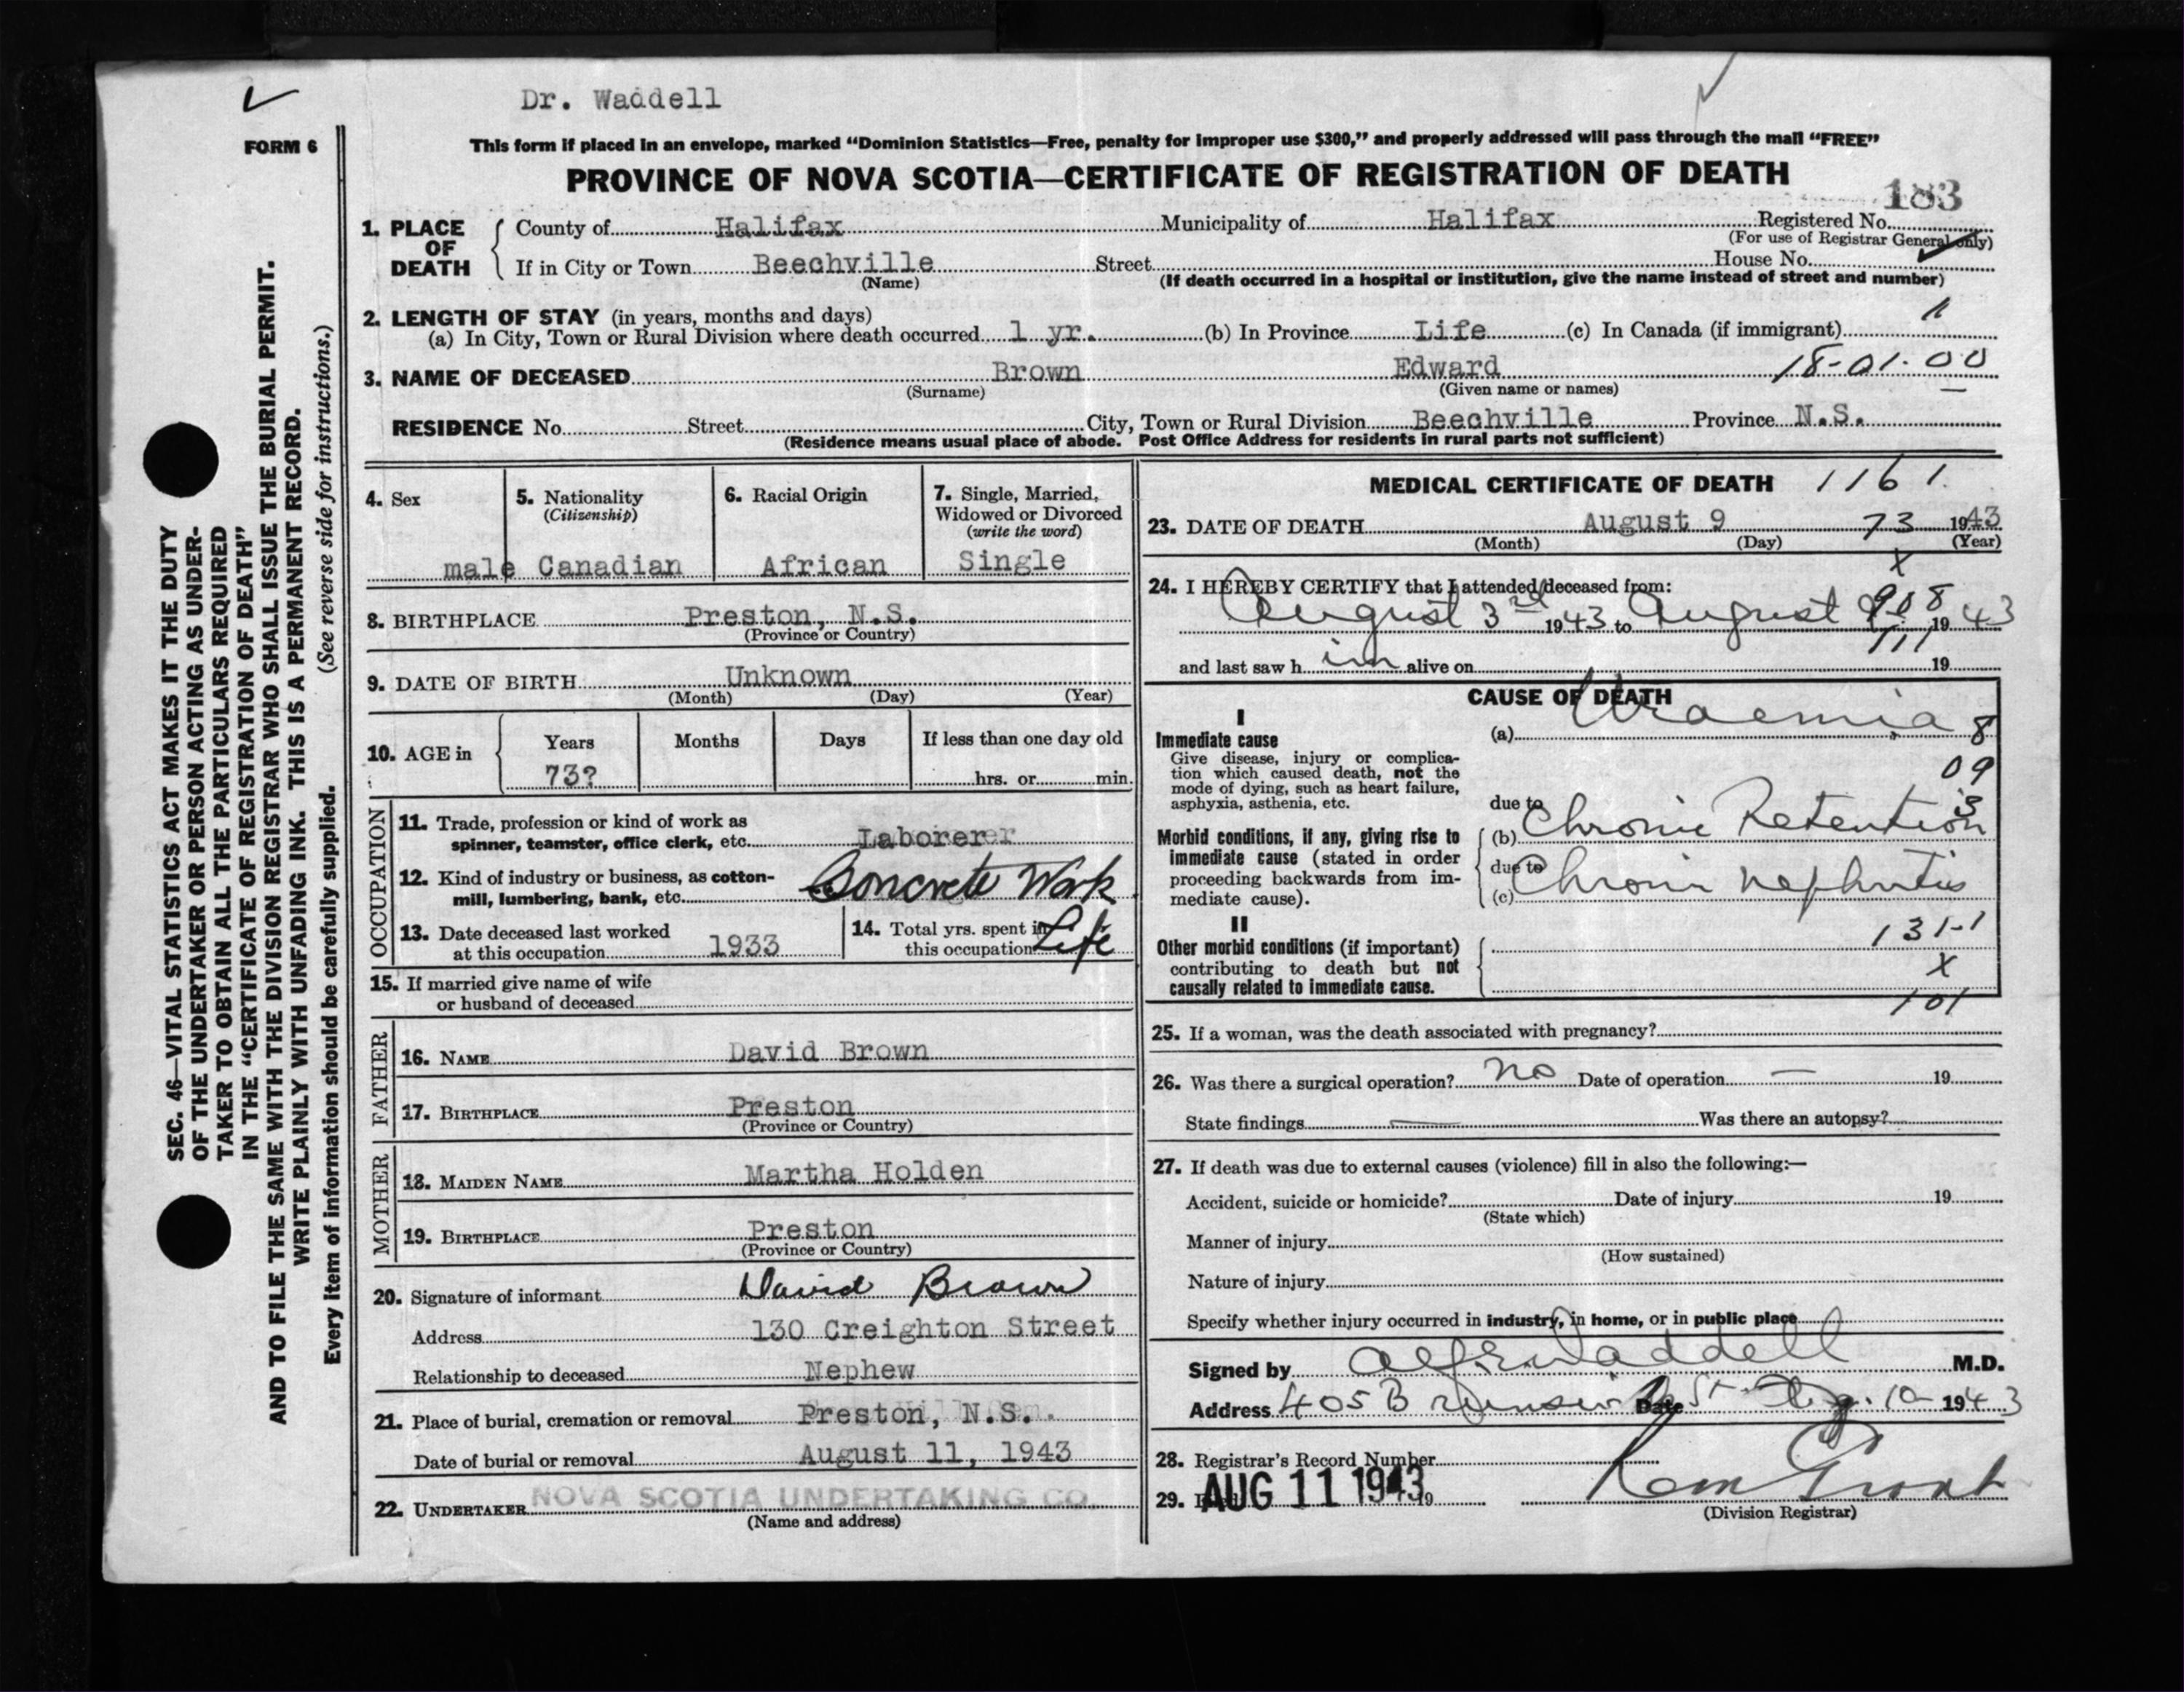 Dr. Waddell
FORM 6
This form if placed in an envelope, marked "Dominion Statistics—Free, penalty for improper use $300," and properly addressed will pass through the mail "FREE"
PROVINCE OF NOVA SCOTIA—CERTIFICATE OF REGISTRATION OF DEATH
183
1. PLACE OF DEATH County of Halifax Municipality of Halifax Registered No.
(For use of Registrar General only)
If in City or Town Beechville Street House No.
(Name) (If death occurred in a hospital or institution, give the name instead of street and number)
2. LENGTH OF STAY (in years, months and days)
(a) In City, Town or Rural Division where death occurred 1 yr. (b) In Province Life (c) In Canada (if immigrant)
3. NAME OF DECEASED Brown Edward 18-01-00
(Surname) (Given name or names)
RESIDENCE No. Street City, Town or Rural Division Beechville Province N.S.
(Residence means usual place of abode. Post Office Address for residents in rural parts not sufficient)
SEC. 46—VITAL STATISTICS ACT MAKES IT THE DUTY
OF THE UNDERTAKER OR PERSON ACTING AS UNDER-
TAKER TO OBTAIN ALL THE PARTICULARS REQUIRED
IN THE "CERTIFICATE OF REGISTRATION OF DEATH"
AND TO FILE THE SAME WITH THE DIVISION REGISTRAR WHO SHALL ISSUE THE BURIAL PERMIT.
WRITE PLAINLY WITH UNFADING INK. THIS IS A PERMANENT RECORD.
Every item of information should be carefully supplied. (See reverse side for instructions.)
4. Sex 5. Nationality 6. Racial Origin 7. Single, Married,
(Citizenship) Widowed or Divorced
(write the word)
male Canadian African Single
8. BIRTHPLACE Preston, N.S.
(Province or Country)
9. DATE OF BIRTH Unknown
(Month) (Day) (Year)
10. AGE in Years Months Days If less than one day old
73? hrs. or min.
OCCUPATION
11. Trade, profession or kind of work as
spinner, teamster, office clerk, etc. Laborerer
12. Kind of industry or business, as cotton-
mill, lumbering, bank, etc. Concrete Work
13. Date deceased last worked 14. Total yrs. spent in
at this occupation 1933 this occupation Life
15. If married give name of wife
or husband of deceased
FATHER
16. NAME David Brown
17. BIRTHPLACE Preston
(Province or Country)
MOTHER
18. MAIDEN NAME Martha Holden
19. BIRTHPLACE Preston
(Province or Country)
20. Signature of informant David Brown
Address 130 Creighton Street
Relationship to deceased Nephew
21. Place of burial, cremation or removal Preston, N.S.
Date of burial or removal August 11, 1943
22. UNDERTAKER NOVA SCOTIA UNDERTAKING CO.
(Name and address)
MEDICAL CERTIFICATE OF DEATH 1161
23. DATE OF DEATH August 9 73 1943
(Month) (Day) (Year)
X
24. I HEREBY CERTIFY that I attended deceased from:
August 3rd 1943 to August 1943
908
111
and last saw him alive on 19
CAUSE OF DEATH
I
Immediate cause (a) Uraemia 8
Give disease, injury or complica-
tion which caused death, not the 09
mode of dying, such as heart failure,
asphyxia, asthenia, etc. due to 3
Morbid conditions, if any, giving rise to (b) Chronic Retention
immediate cause (stated in order due to
proceeding backwards from im- (c) Chronic Nephritis
mediate cause).
II 131-1
Other morbid conditions (if important)
contributing to death but not X
causally related to immediate cause.
101
25. If a woman, was the death associated with pregnancy?
26. Was there a surgical operation? No Date of operation — 19
State findings — Was there an autopsy?
27. If death was due to external causes (violence) fill in also the following:—
Accident, suicide or homicide? Date of injury 19
(State which)
Manner of injury
(How sustained)
Nature of injury
Specify whether injury occurred in industry, in home, or in public place
Signed by Waddell M.D.
Address 405 Brunswick St Date Aug. 10 1943
28. Registrar's Record Number
29. AUG 11 1943 19
(Division Registrar)